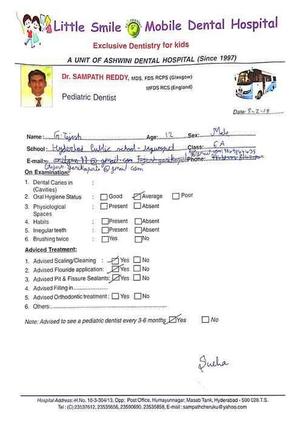 Little Smile Mobile Dental Hospital
Exclusive Dentistry for kids
A UNIT OF ASHWINI DENTAL HOSPITAL (Since 1997)
Dr. SAMPATH REDDY, MDS, FDS RCPS (Glasgow)
MFDS RCS (England)
Pediatric Dentist
Date:
Name: G. Tejesh Age: 12 Sex: Male
School: Hyderabad Public school - Class: 6A
E-mail: Phone:
On Examination:
1. Dental Caries in
(Cavities)
2. Oral Hygiene Status Good Average Poor
3. Physiological Present Absent
Spaces
4. Habits Present Absent
5. Irregular teeth Present Absent
6. Brushing twice Yes No
Adviced Treatment:
1. Advised Scaling/Cleaning : Yes No
2. Advised Flouride application: Yes No
3. Advised Pit & Fissure Sealants: Yes No
4. Advised Filling in
5. Advised Orthodontic treatment : Yes No
6. Others:
Note: Advised to see a pediatric dentist every 3-6 months Yes No
Hospital Address: H.No. 10-3-304/13, Opp. Post Office, Humayunnagar, Masab Tank, Hyderabad - 500 028.T.S.
Tel : (C) 23537612, 23535656, 23590690, 23535858, E-mail : sampathcheruku@yahoo.com